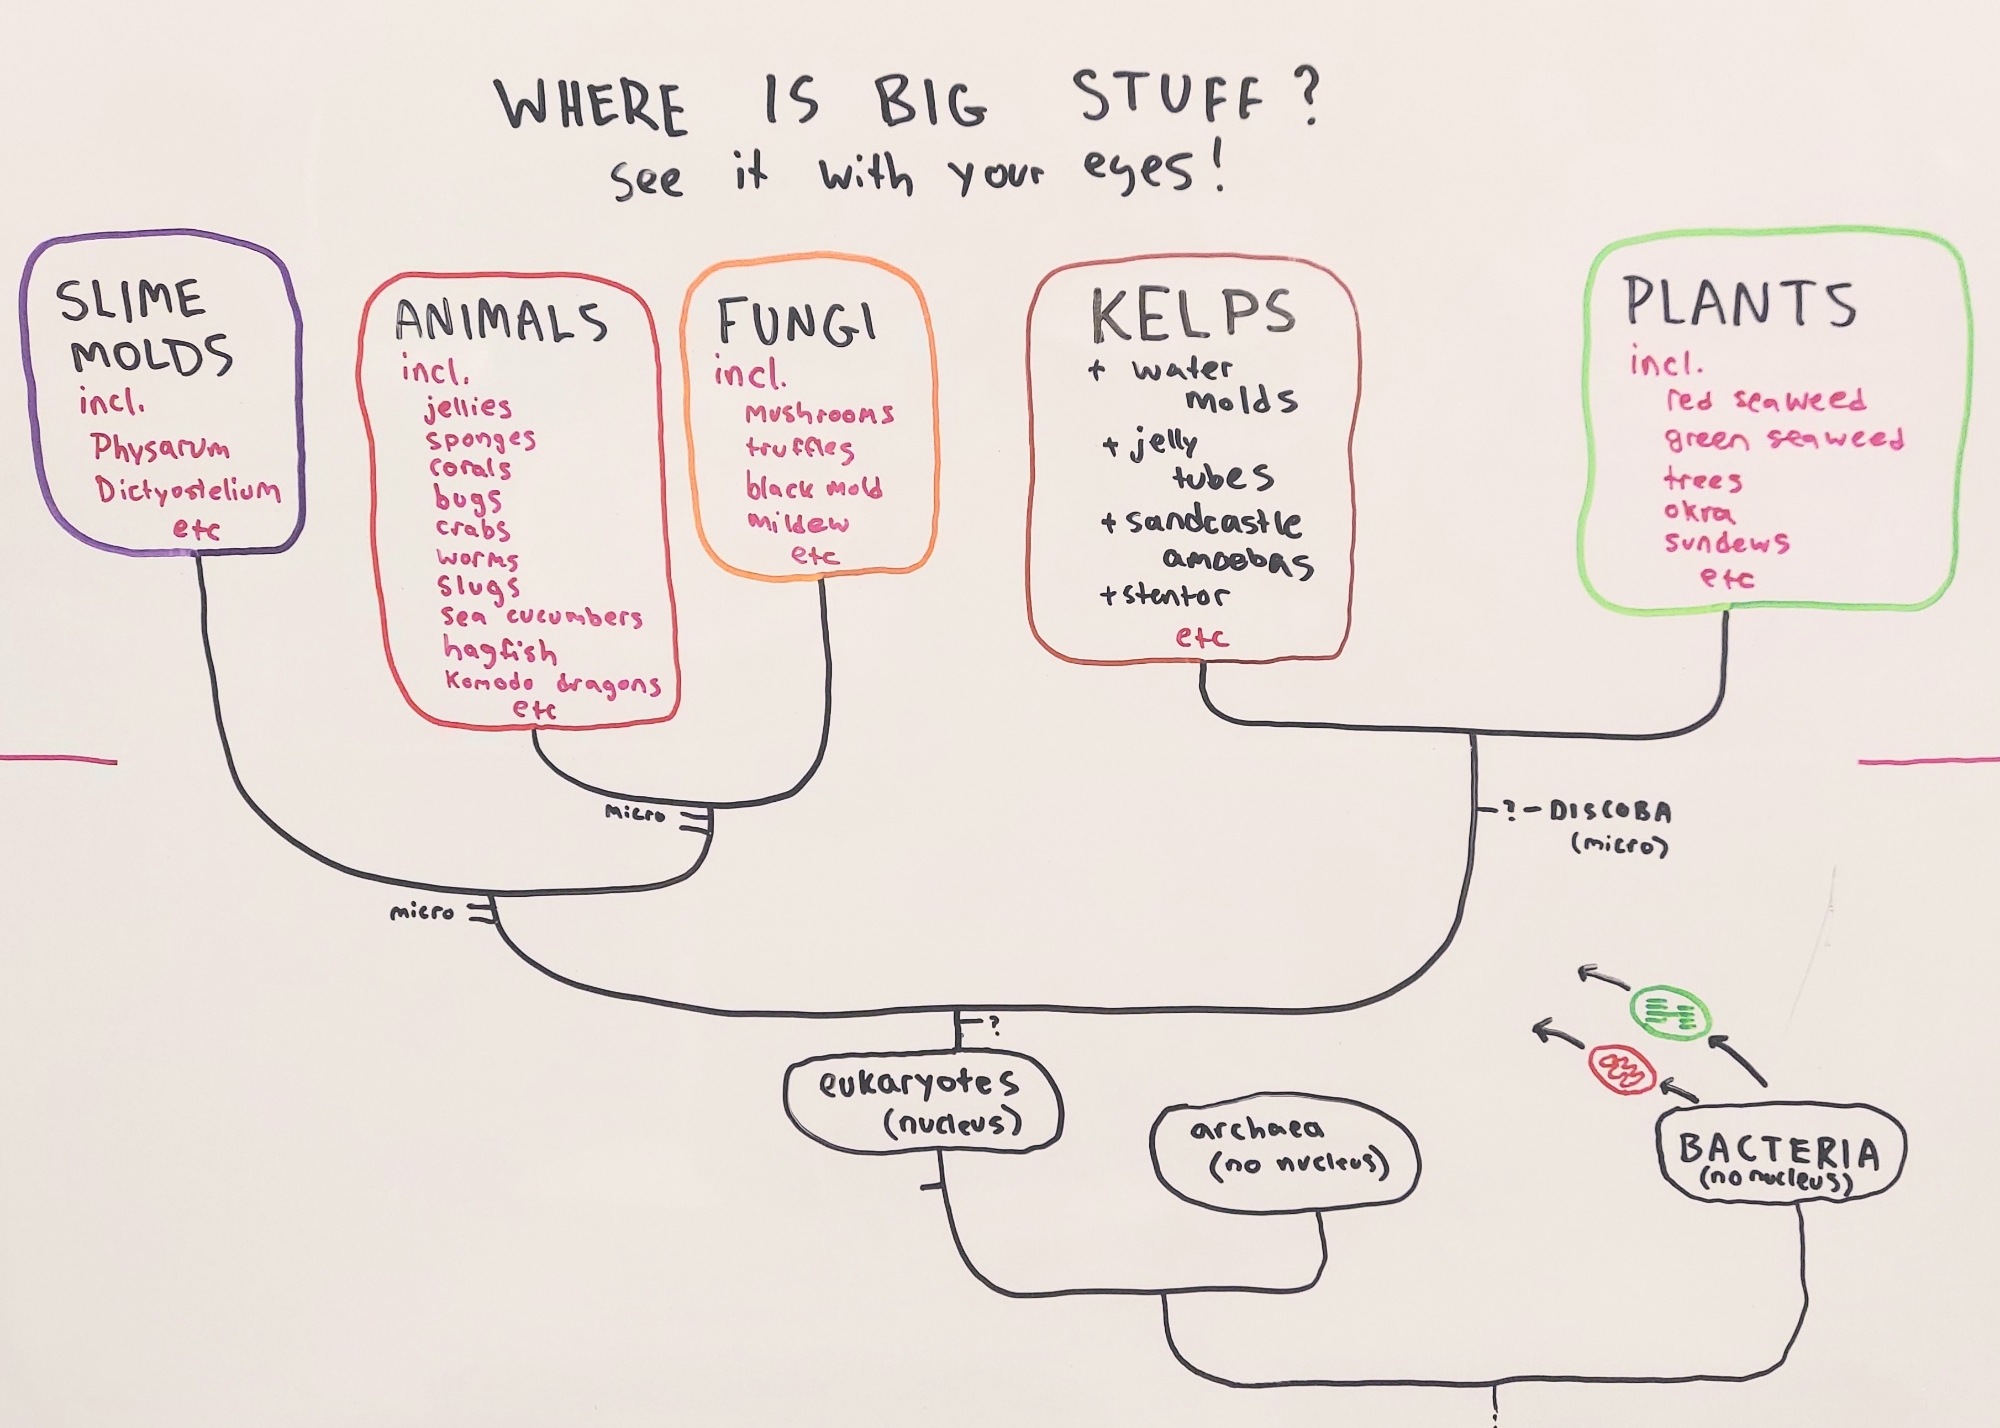 WHERE IS BIG STUFF?
see it with your eyes!
SLIME
MOLDS
incl.
Physarum
Dictyostelium
etc
ANIMALS
incl.
jellies
sponges
corals
bugs
crabs
worms
slugs
sea cucumbers
hagfish
Komodo dragons
etc
FUNGI
incl.
mushrooms
truffles
black mold
mildew
etc
KELPS
+ water
molds
+ jelly
tubes
+ sandcastle
amoebas
+ stentor
etc
PLANTS
incl.
red seaweed
green seaweed
trees
okra
sundews
etc
micro
? - DISCOBA
(micro)
micro
?
eukaryotes
(nucleus)
archaea
(no nucleus)
BACTERIA
(no nucleus)